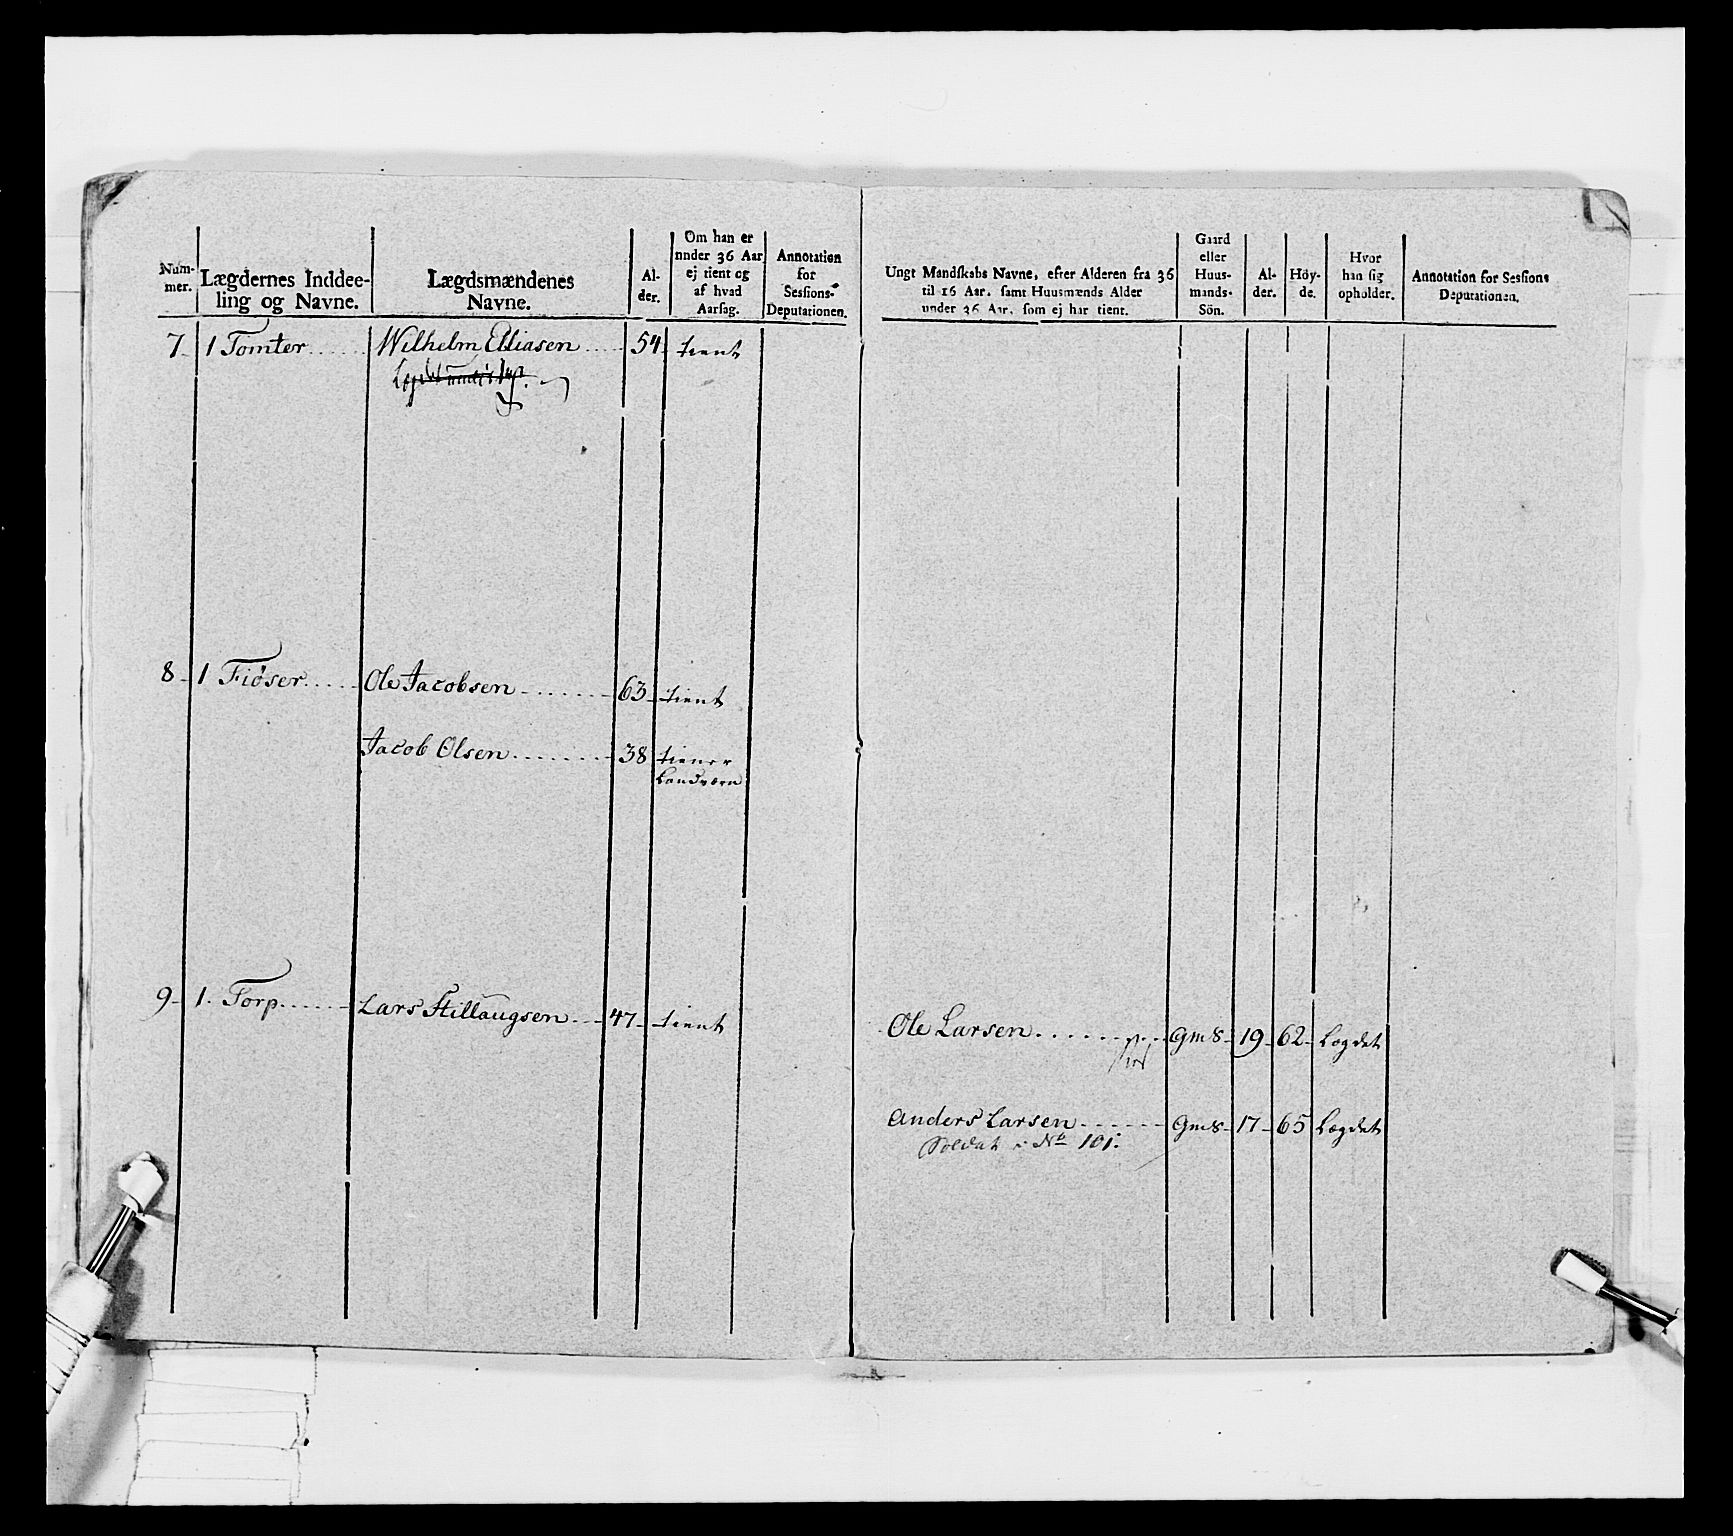 Num-
mer.
Lægdernes Inddee-
ling og Navne.
Lægdsmændenes
Navne.
Al-
der.
Om han er
under 36 Aar
ej tient og
af hvad
Aarsag.
Annotation
for
Sessions-
Deputationen.
Ungt Mandskabs Navne, efter Alderen fra 36
til 16 Aar, samt Huusmænds Alder
under 36 Aar, som ej har tient.
Gaard
eller
Huus-
mands-
Sön.
Al-
der.
Höy-
de.
Hvor
han sig
opholder.
Annotation for Sessions
Deputationen.
7 1 Tomter Wilhelm Elliasen 54 tient
8 1 Fiøser Ole Jacobsen 63 tient
Jacob Olsen 38 tiener
Landværn
9 1 Torp Lars Stillaugsen 47 tient
Ole Larsen gms 19 62 Lægdet
Anders Larsen gms 17 65 Lægdet
Soldat i No 101